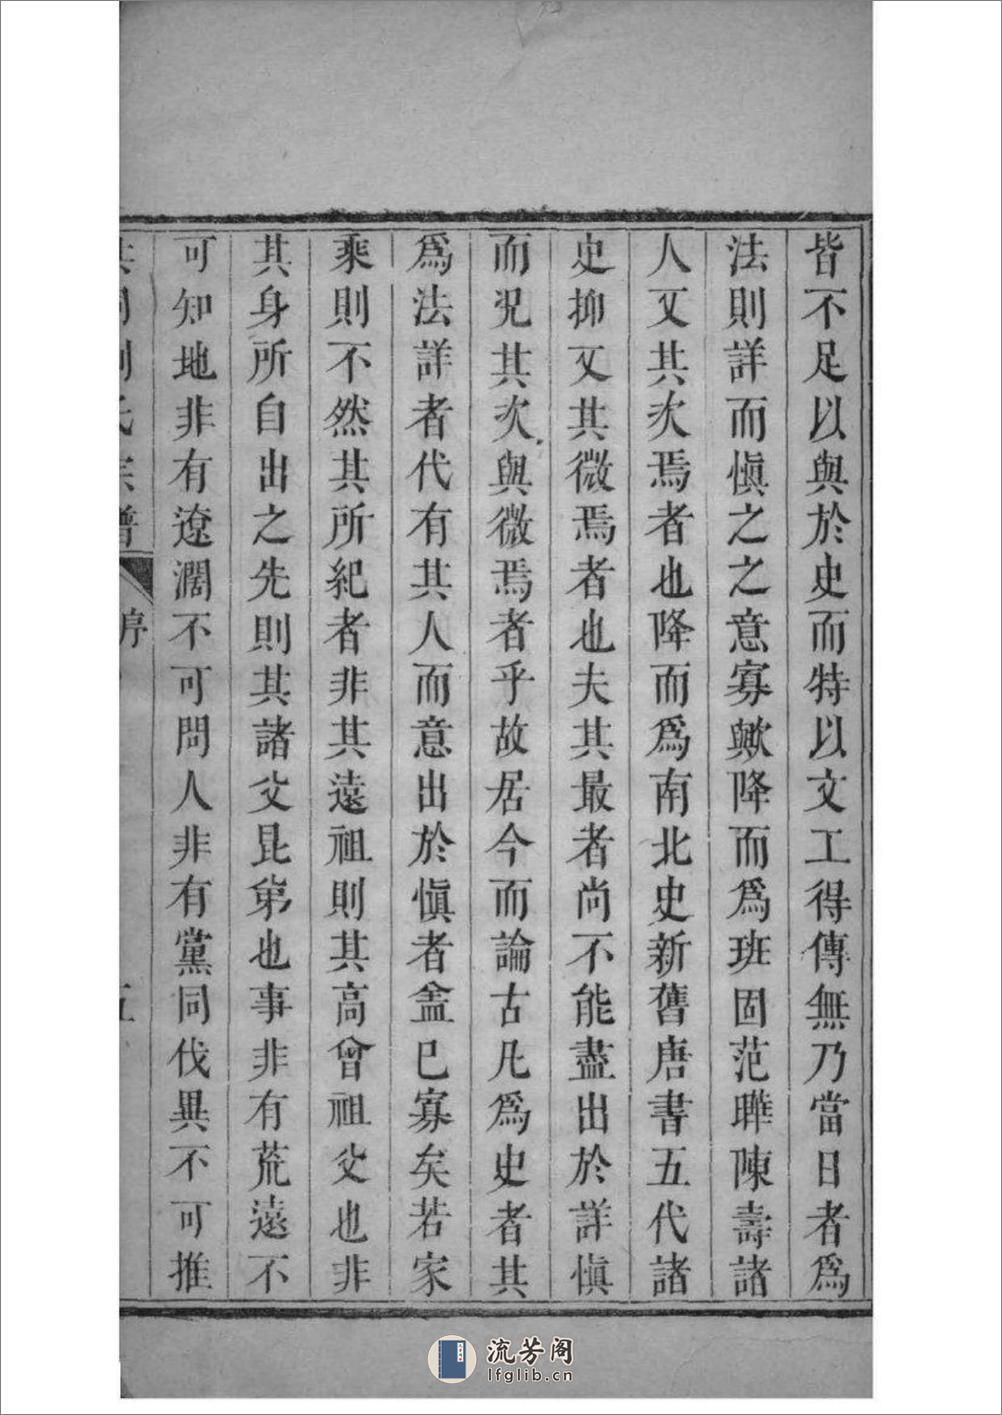 皆不足以與於史而特以文工得傳無乃當日者爲
法則詳而愼之之意寡歟降而爲班固范曄陳壽諸
人又其次焉者也降而爲南北史新舊唐書五代諸
史抑又其微焉者也夫其最者尚不能盡出於詳愼
而況其次與微焉者乎故居今而論古凡爲史者其
爲法詳者代有其人而意出於愼者盖已寡矣若家
乘則不然其所紀者非其遠祖則其高曾祖父也非
其身所自出之先則其諸父昆弟也事非有荒遠不
可知地非有遼濶不可問人非有黨同伐異不可推
氏宗譜
序
五
流芳阁
lfglib.cn